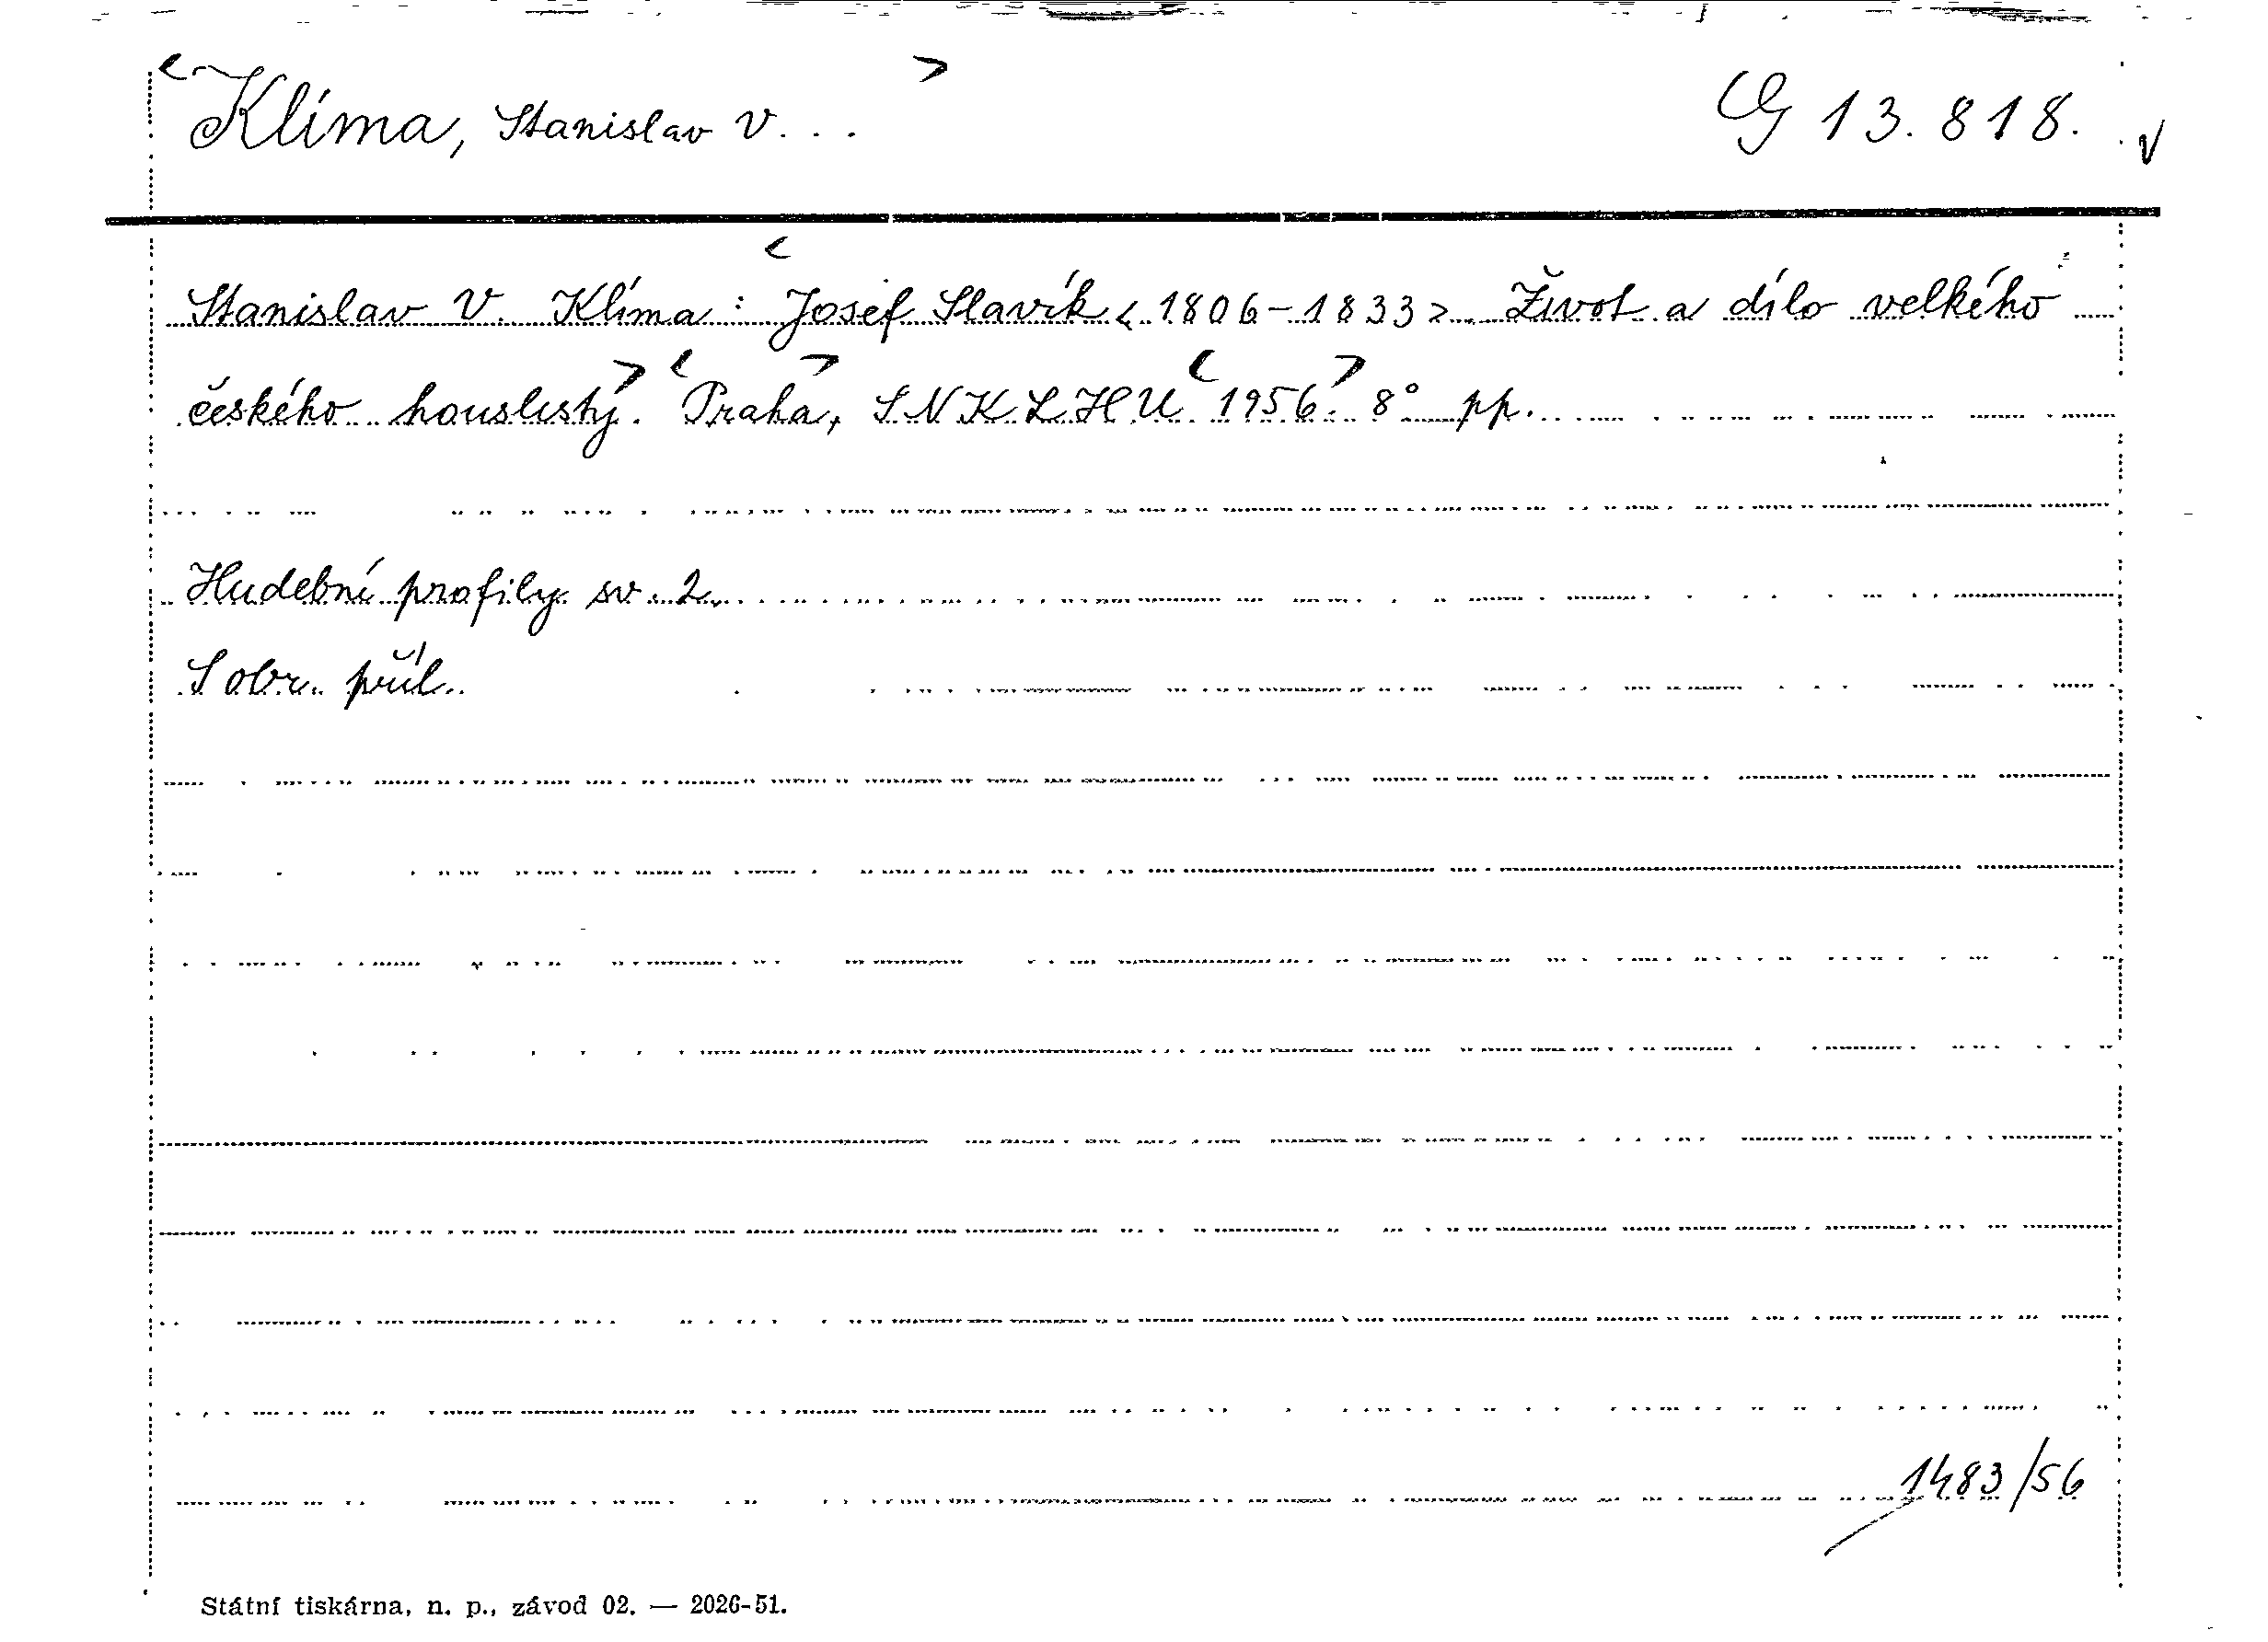 <Klíma, Stanislav V...> G 13.818. √
Stanislav V. Klíma: <Josef Slavík <1806-1833>. Život a dílo velkého
českého houslisty>. <Praha>, SNKLHU <1956>. 8° pp.
Hudební profily sv. 2.
S obr. příl.
1483/56
Státní tiskárna, n. p., závod 02. — 2026-51.